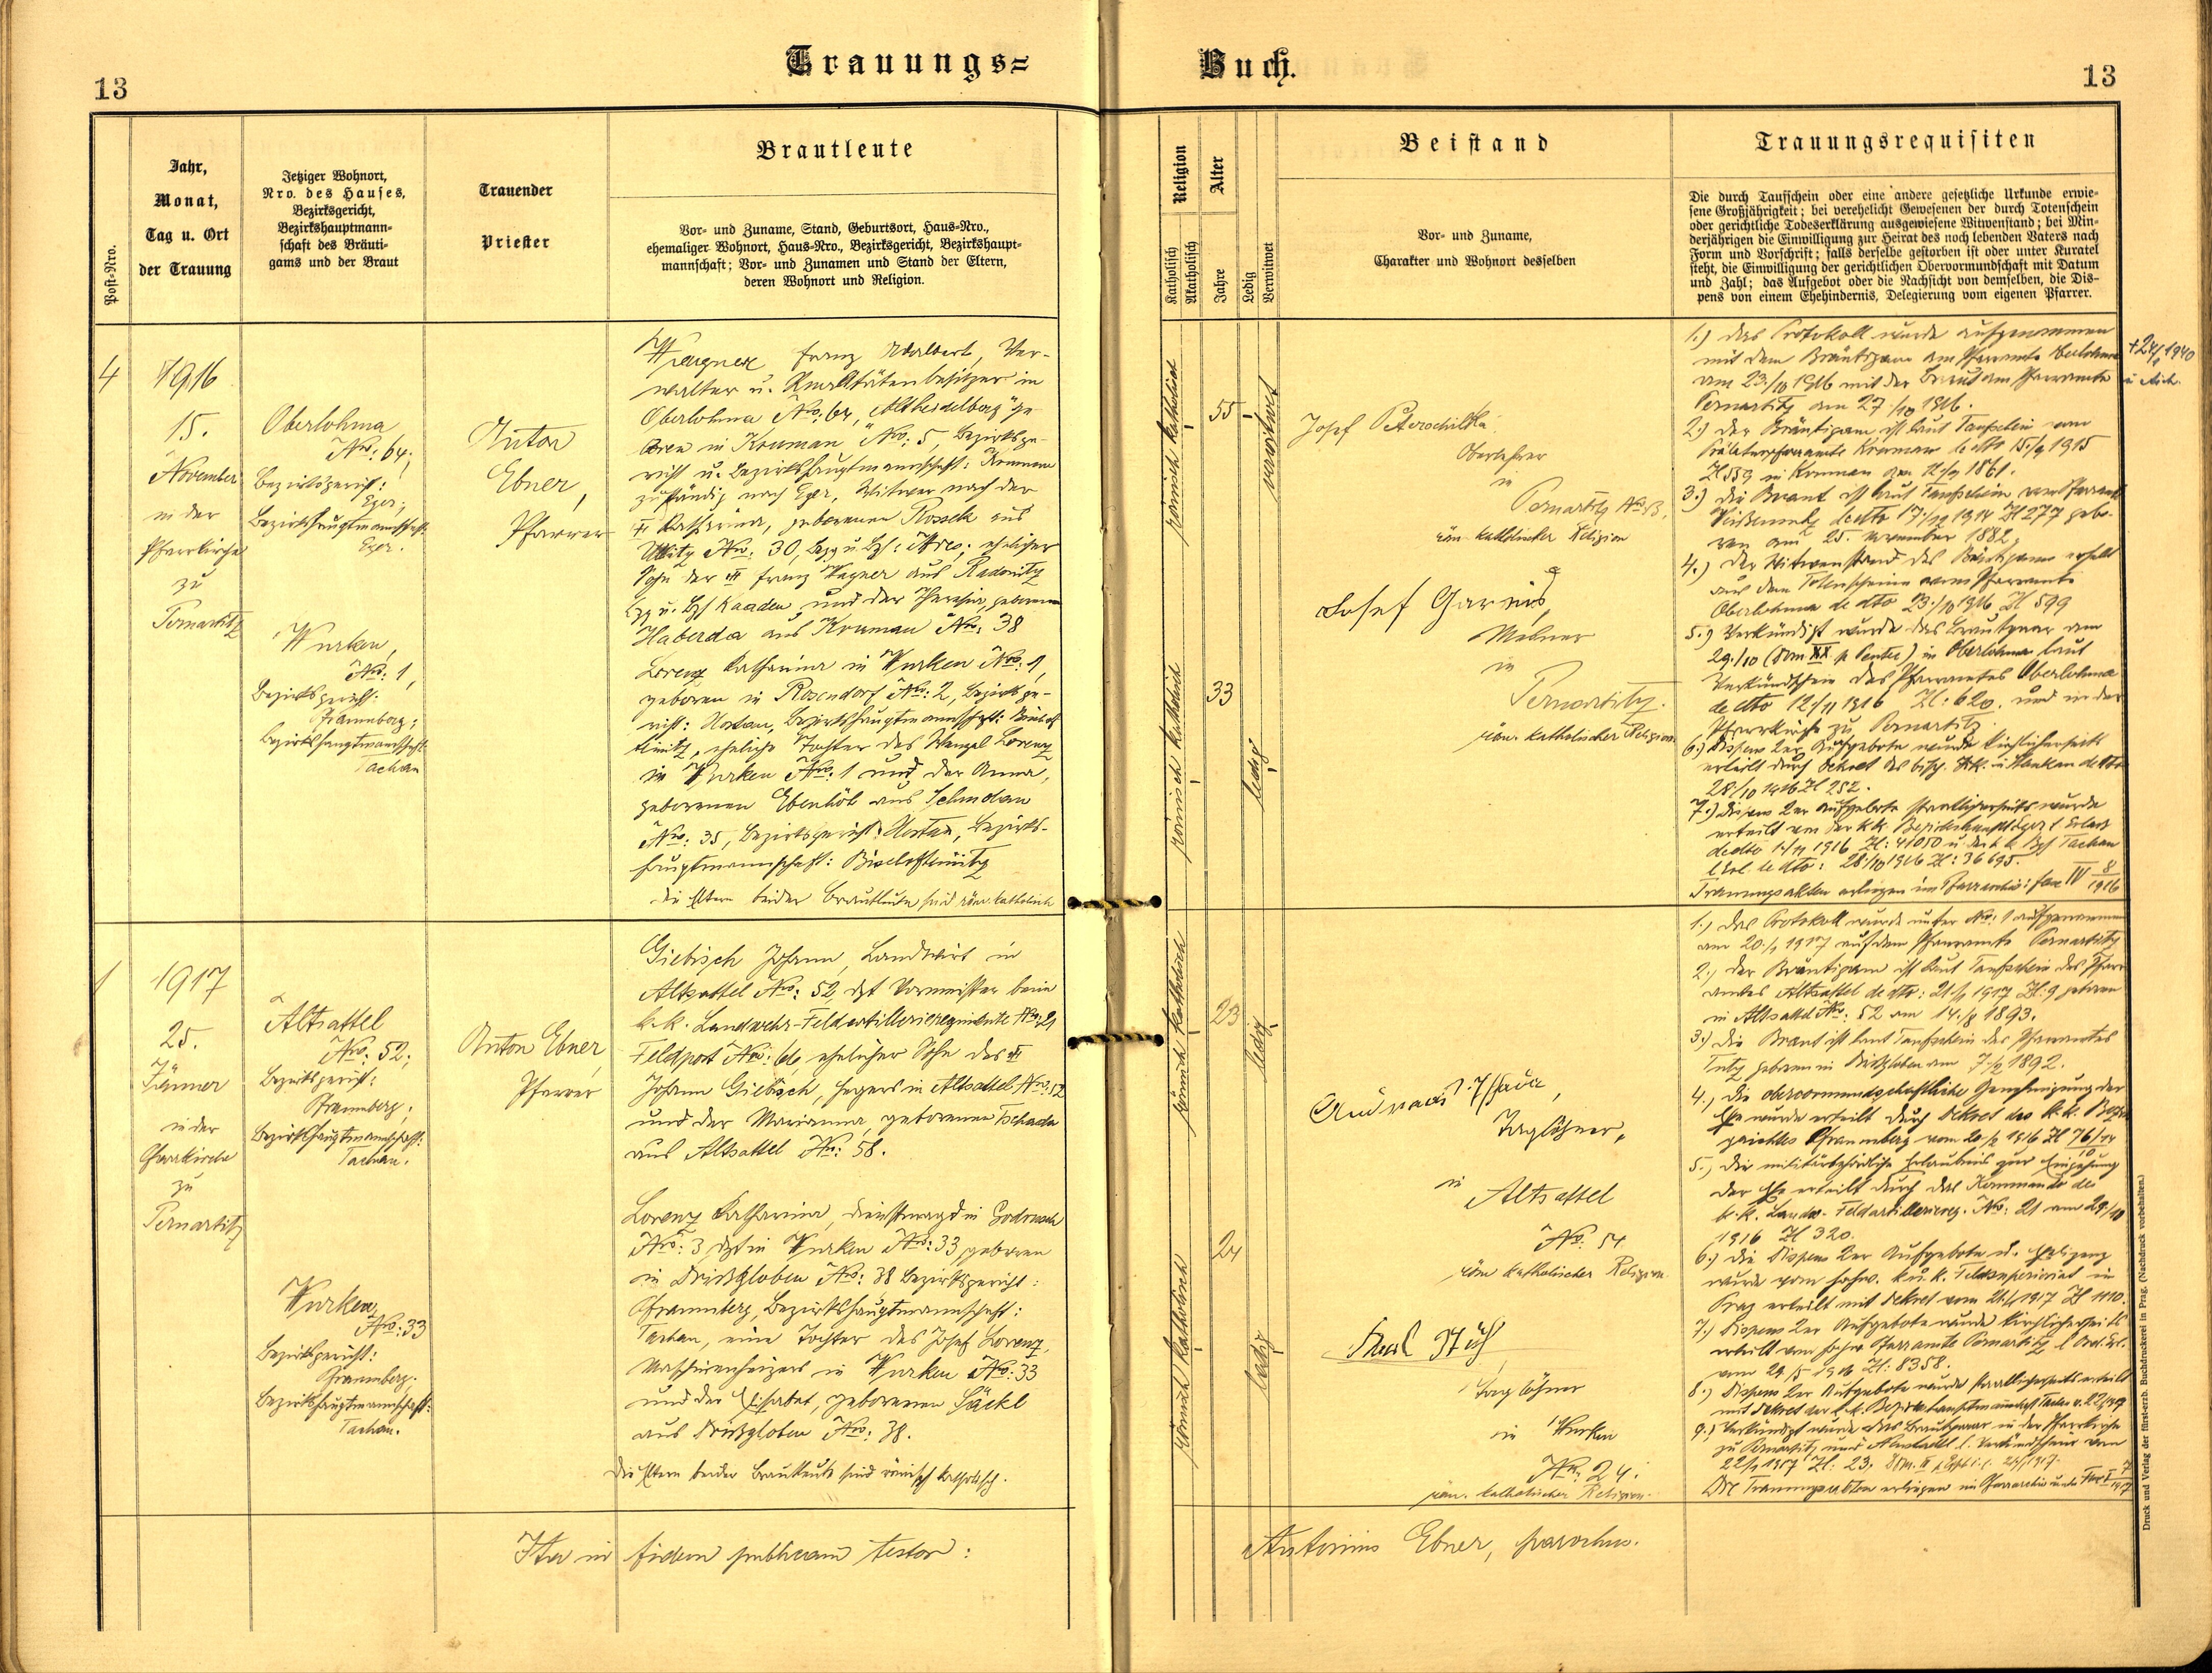 Trauungs=
Buch.
13
13
Post-Nro.
Jahr,
Monat,
Tag u. Ort
der Trauung
Jetziger Wohnort,
Nro. des Hauses,
Bezirksgericht,
Bezirkshauptmann-
schaft des Bräuti-
gams und der Braut
Trauender
Priester
Brautleute
Vor- und Zuname, Stand, Geburtsort, Haus-Nro.,
ehemaliger Wohnort, Haus-Nro., Bezirksgericht, Bezirkshaupt-
mannschaft; Vor- und Zunamen und Stand der Eltern,
deren Wohnort und Religion.
Religion
Katholisch
Akatholisch
Alter
Jahre
Ledig
Verwitwet
Beistand
Vor- und Zuname,
Charakter und Wohnort desselben
Trauungsrequisiten
Die durch Taufschein oder eine andere gesetzliche Urkunde erwie-
sene Großjährigkeit; bei verehelicht Gewesenen der durch Totenschein
oder gerichtliche Todeserklärung ausgewiesene Witwenstand; bei Min-
derjährigen die Einwilligung zur Heirat des noch lebenden Vaters nach
Form und Vorschrift; falls derselbe gestorben ist oder unter Kuratel
steht, die Einwilligung der gerichtlichen Obervormundschaft mit Datum
und Zahl; das Aufgebot oder die Nachsicht von demselben, die Dis-
pens von einem Ehehindernis, Delegierung vom eigenen Pfarrer.
4
1916
15.
November
in der
Pfarrkirche
zu
Pernartitz
Oberlohma
Nro: 64;
Bezirksgericht:
Eger;
Bezirkshauptmannschaft:
Eger.
Wurken,
Nro: 1,
Bezirksgericht:
Pfraumberg;
Bezirkshauptmannschaft:
Tachau
Anton
Ebner,
Pfarrer
Wagner Franz Adalbert, Ver-
walter u. Realitätenbesitzer in
Oberlohma Nro: 64, "Altheidelberg" ge-
boren in Krumau Nro: 5, Bezirksge-
richt u. Bezirkshauptmannschaft: Krumau
zuständig nach Eger, Witwer nach der
Katharina, geborenen Rossek aus
Nro: 30, ehelicher
Sohn der Franz Wagner aus Radonitz
Kaaden und der Theresia, geborenen
Haberda aus Krumau Nro: 38
Lorenz Katharina in Wurken Nro: 1,
geboren in Rosendorf Nro: 2, Bezirksge-
richt: Hostau, Bezirkshauptmannschaft: Bischof
teinitz, eheliche Tochter des Wenzel Lorenz
in Wurken Nro: 1 und der Anna,
geborenen Ebenhöh aus
Nro: 35, Bezirksgericht: Hostau, Bezirks-
hauptmannschaft: Bischofteinitz
Die Eltern beider Brautleute sind röm. katholisch
römisch katholisch
55
verwitwet
römisch katholisch
33
ledig
Josef
Oberlehrer
in
Pernartitz
röm. katholischer Religion
Josef
Mesner
in
Pernartitz.
röm. katholischer Religion
1.) Das Protokoll wurde aufgenommen
mit dem Bräutigam am Pfarramte Oberlohma
am 23./10 1916 mit der Braut am Pfarramte
Pernartitz am 27./10 1916.
2.) Der Bräutigam ist laut Taufschein vom
Prälaturpfarramte Krumau de dto 15./9 1915
in Krumau 1861.
3.) Die Braut ist laut Taufschein vom Pfarramte
1914 Zl 277 gebo-
ren am 25. November 1882.
4.) Der Witwenstand des Bräutigams erhellt
aus dem Totenscheine vom Pfarramte
Oberlohma de dto 23./10 1916 Zl 599
5.) Verkündigt wurde das Brautpaar am
29./10 in Oberlohma laut
Verkündschein des Pfarramtes Oberlohma
de dto 12./11 1916 Zl: 620. und in der
Pfarrkirche zu Pernartitz.
6.) Dispens 2er Aufgebote wurde kirchlicherseits
erteilt durch Dekret des
28./10 1916 Zl 252.
7.) Dispens 2er Aufgebote staatlicherseits wurde
erteilt von der k.k.
1916 Zl: 41050 Tachau
de dto: 28./10 1916 Zl: 36695.
Trauungsakten erliegen im Pfarrarchiv: fasc IV 8/1916
1940
1
1917
25.
Jänner
in der
Pfarrkirche
zu
Pernartitz
Altsattel
Nro: 52;
Bezirksgericht:
Pfraumberg;
Bezirkshauptmannschaft:
Tachau.
Wurken,
Nro: 33
Bezirksgericht:
Pfraumberg.
Bezirkshauptmannschaft:
Tachau.
Anton Ebner,
Pfarrer
Giebisch Johann, Landwirt in
Altsattel Nro: 52, dzt Vormeister beim
k.k. Landwehr-Feldartillerieregimente Nro: 21
Feldpost Nro: ehelicher Sohn des
Johann Giebisch, Hegers in Altsattel Nro: 52
und der Marianna, geborenen Tschada
aus Altsattel Nro: 58.
Lorenz Katharina, Dienstmagd in Godrusch
Nro: 3 dzt in Wurken Nro: 33 geboren
in Drißgloben Nro: 38 Bezirksgericht:
Pfraumberg, Bezirkshauptmannschaft:
Tachau, eine Tochter des Josef Lorenz,
Maschinenheizers in Wurken Nro: 33
und der Elisabet, geborenen Säckl
aus Drißgloben Nro: 38.
Die Eltern beider Brautleute sind römisch katholisch.
römisch katholisch
23
ledig
römisch katholisch
24
ledig
Andreas
Taglöhner,
in
Altsattel
Nro: 54
röm katholischer Religion.
Karl
Taglöhner
in Wurken
Nro: 24.
röm. katholischer Religion.
1.) Das Protokoll wurde unter Nro: 1 aufgenommen
am 20./1 1917 auf dem Pfarramte Pernartitz
2.) Der Bräutigam ist laut Taufschein des Pfarr
amtes Altsattel de dto: 21./1 1917 Zl: 9 geboren
in Altsattel Nro: 52 am 14./8 1893.
3.) Die Braut ist laut Taufschein des Pfarramtes
geboren in Drißgloben am 1892.
4.) Die obervormundschaftliche Genehmigung der
Ehe wurde erteilt durch Dekret des k.k. Bezirks
gerichtes Pfraumberg vom 1916
5.) Die militärbehördliche Erlaubnis zur Eingehung
der Ehe erteilt durch das Kommando des
k.k. Landw.-Feldartilliereg. Nro: 21 am
1916 Zl 320.
6.) Die Dispens 2er Aufgebote
wurde vom k.u.k. Feldsuperiorat in
Prag erteilt mit Dekret vom 1917
7.) Dispens 2er Aufgebote wurde kirchlicherseits
erteilt vom Pfarramte Pernartitz
vom 1916 Zl: 8358.
8.) Dispens 2er Aufgebote wurde staatlicherseits erteilt
mit Dekret der k.k. Bezirkshauptmannschaft Tachau
9.) Verkündigt wurde das Brautpaar in der Pfarrkirche
zu Pernartitz und Altsattel l. Verkündschein vom
22/1 1917 Zl: 23.
Die Trauungsakten erliegen im Pfarrarchiv
Ita in fidem publicam testor:
Antonius Ebner, parochus.
Druck und Verlag der fürst-erzb. Buchdruckerei in Prag. (Nachdruck vorbehalten.)